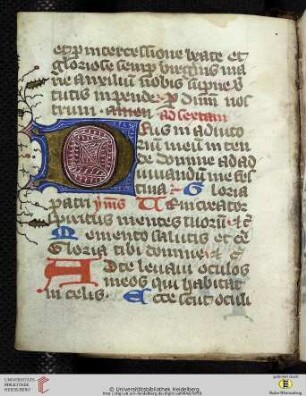 et per intercessione beate et
gloriose semper virginis ma
rie auxilium nobis superne v
tutis impende. Per dnm nos
trum. amen ad sextam
Deus in adiuto
rium meum in ten
de domine ad ad
iuuandum me fes
tina. Gloria
patri ymns Veni creator
spiritus mentes tuorum et c
Memento salutis et c
Gloria tibi domine et c
Ad te leuaui oculos
meos qui habitas
in celis. Ecce sicut oculi
UNIVERSITÄTS-
BIBLIOTHEK
HEIDELBERG
© Universitätsbibliothek Heidelberg
gefördert durch
Baden-Württemberg